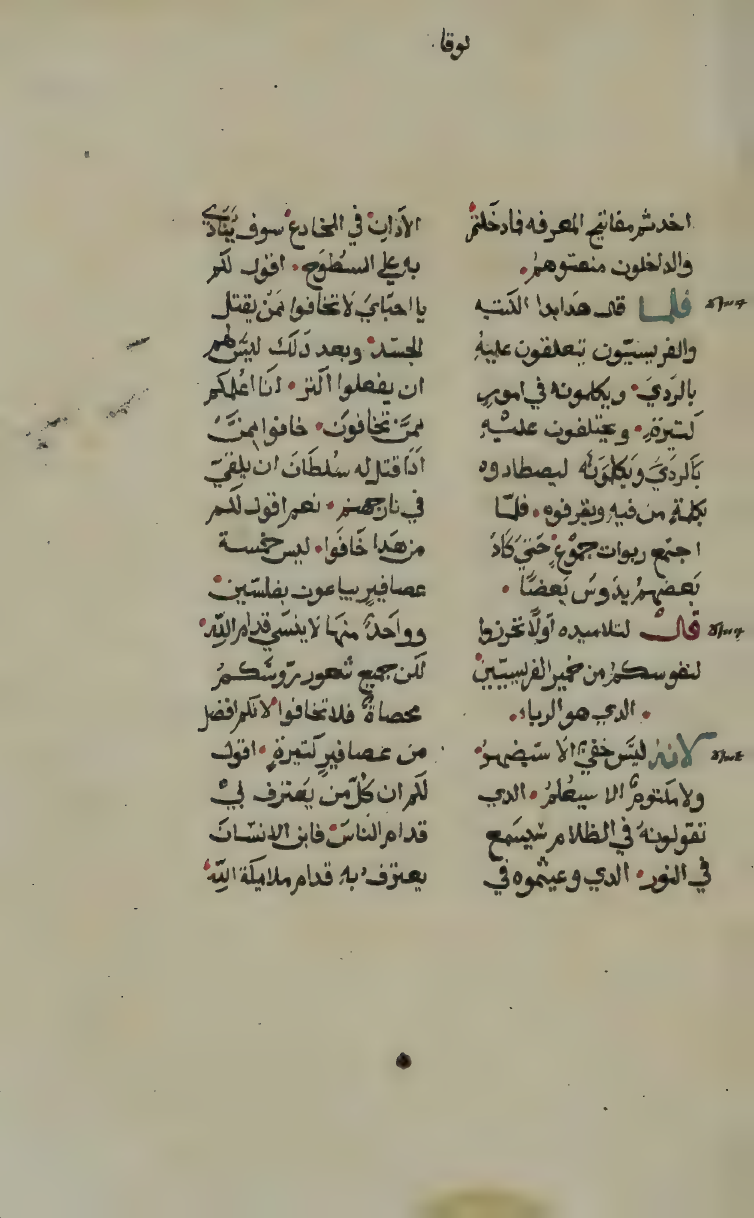 لوقا
اخدتم مفاتيح المعرفه فادخلتم
والداخلون منعتوهم
فلما قال هدا بدا الكتبه
والفريسيون يتعلقون عليه
بالردي ويكلمونه في امور
كتيرة ويختلفون عليه
بالردي ويكلمونه ليصطادوه
بكلمة من فيه ويقرفوه فلما
اجتمع ربوات جموع حتي كاد
بعضهم يدوس بعضا
قال لتلاميده اولا تحرزوا
لنفوسكم من خمير الفريسيين
الدي هو الرياء
لانه ليس خفي الا سيضهر
ولا مكتوم الا سيعلم الدي
تقولونه في الظلام سيسمع
في النور الدي وعيتموه في
الآدان في المخادع سوف ينادى
به علي السطوح اقول لكم
يا احباي لا تخافوا ممن يقتل
الجسد وبعد دلك ليس لهم
ان يفعلوا اكتر انا اعلمكم
ممن تخافون خافوا ممن
ادا قتل له سلطان ان يلقي
في نار جهنم نعم اقول لكم
من هدا خافوا ليس خمسة
عصافير يباعون بفلسين
وواحد منها لا ينسي قدام الله
لكن جميع شعور روسكم
محصاة فلا تخافوا لانكم افضل
من عصافير كتيرة اقول
لكم ان كل من يعترف لي
قدام الناس فابن الانسان
يعترف به قدام ملايكة الله